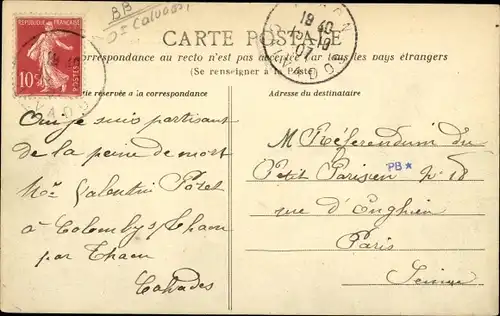 BB
RÉPUBLIQUE FRANÇAISE
10c
POSTES
18 40
07
CARTE POSTALE
Correspondance au recto n'est pas acceptée par tous les pays étrangers
(Se renseigner à la Poste)
Partie réservée à la correspondance
Adresse du destinataire
Oui je suis partisant
de la peine de mort
Valentin
à Colomby s/ Thaon
par Thaon
Calvados
M Référendum du
Petit Parisien N° 18
PB★
rue d'Enghien
Paris
Seine